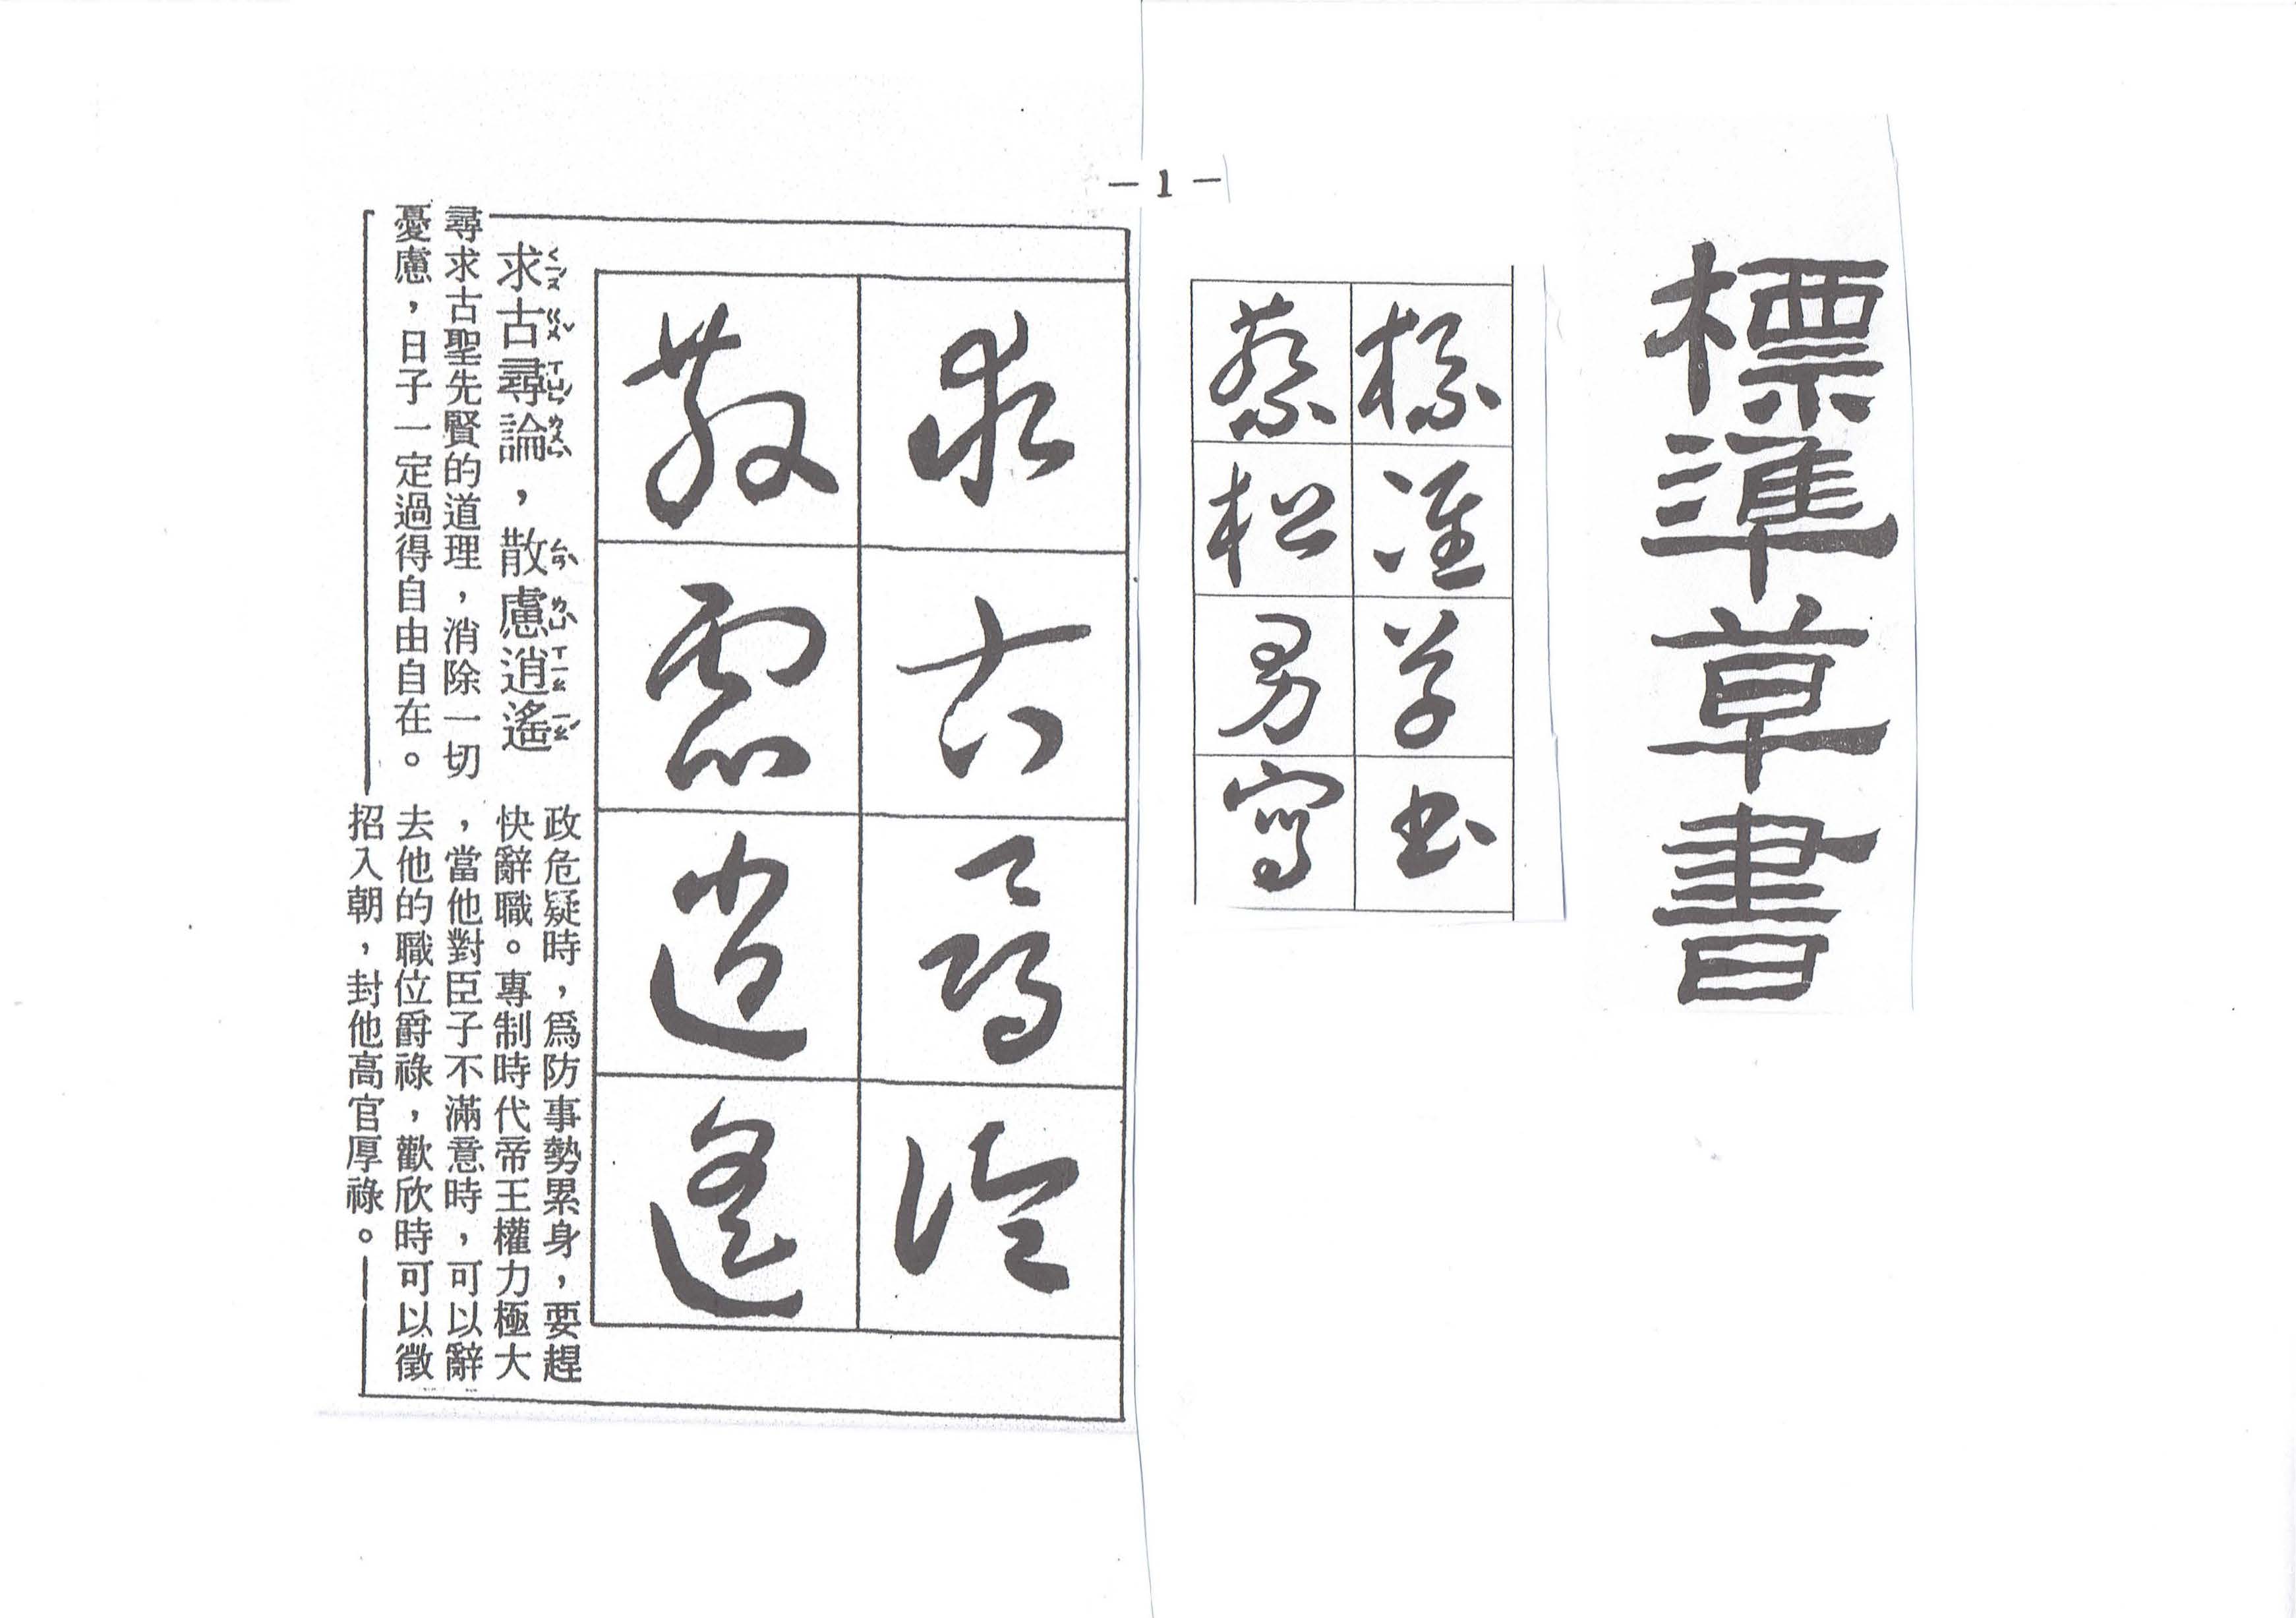 標準草書
標准草書
蔡松男寫
— 1 —
求古尋論
散慮逍遙
求古尋論，散慮逍遙
ㄑㄧㄡˊ ㄍㄨˇ ㄒㄩㄣˊ ㄌㄨㄣˊ ㄙㄢˋ ㄌㄩˋ ㄒㄧㄠ ㄧㄠˊ
尋求古聖先賢的道理，消除一切
憂慮，日子一定過得自由自在。
政危疑時，爲防事勢累身，要趕
快辭職。專制時代帝王權力極大
，當他對臣子不滿意時，可以辭
去他的職位爵祿，歡欣時可以徵
招入朝，封他高官厚祿。